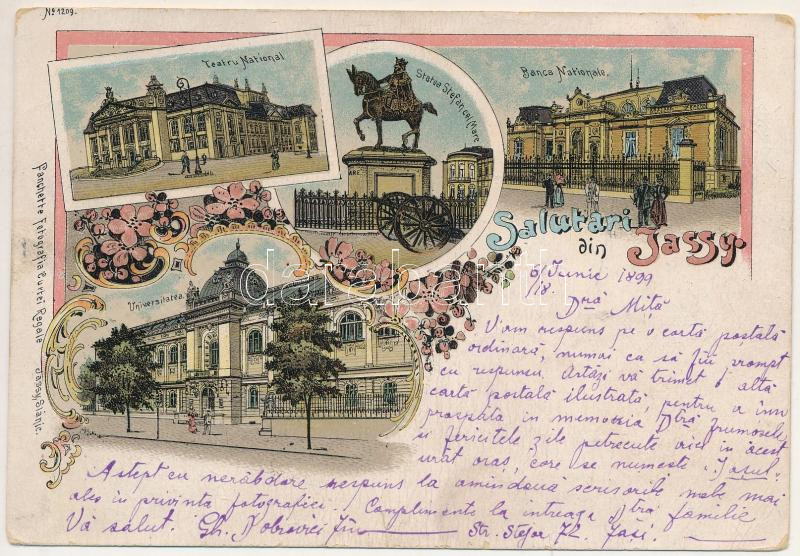 No 1209.
Teatru National
Statue Stefan cel Mare
Banca Nationale.
Universitatea.
Salutari
din
Jassy.
Panchette Fotografia Curtei Regale Jassy Stânic.
6/18 Iunie 1899
Dră Mita
V'am respuns pe o cartă postală
ordinară, numai ca să fiu prompt
cu respunsu. Artăzi vă trimet o altă
cartă postală ilustrată, pentru a înve
prospăta in memoria Dtră frumosele
si fericitele zile petrecute aici in acest
urăt oras, care se numeste "Iasul"
Astept cu nerăbdare respuns la amindouă scrisorile mele mai
ales in privinta fotografiei. Complimente la intreaga Dtră familie
Vă salut. Gh. Dobrovici Str. Stejar 72. Iasi.
databanthi